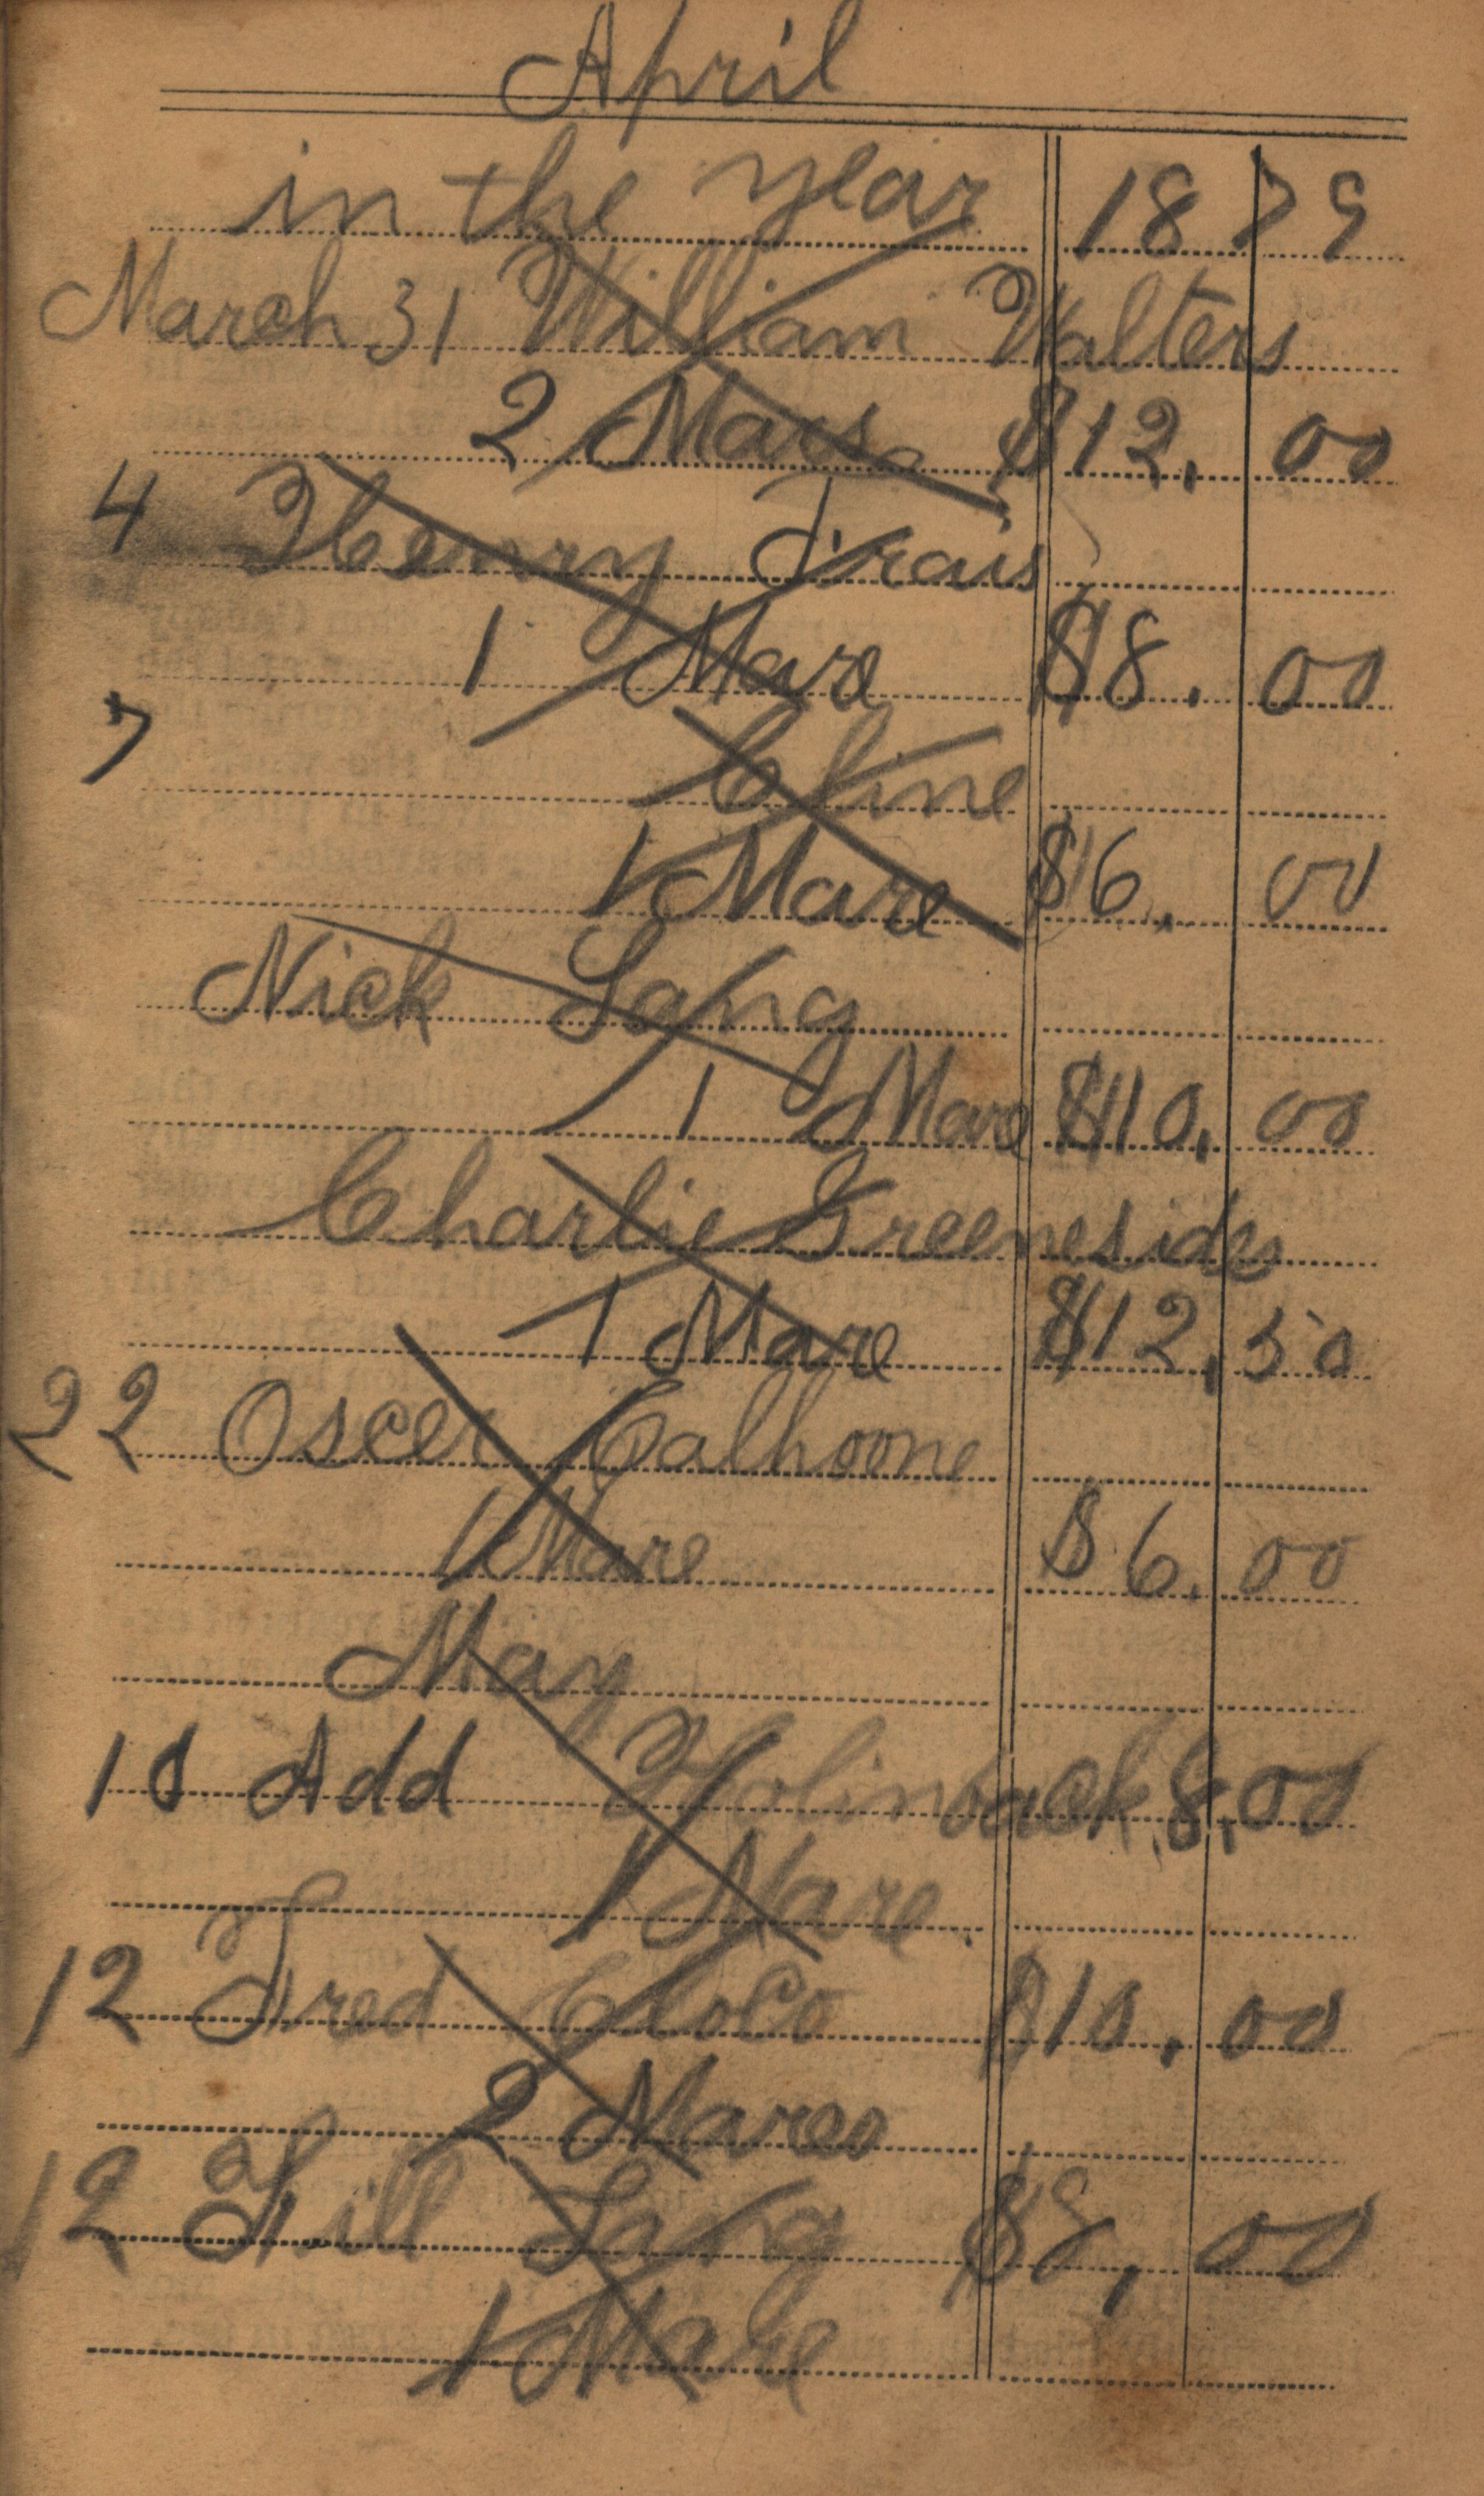 April
in the year 1879
March 31 William Walters
2 Mars $12.00
4 Henry Frais
1 Mare $8.00
7 Cline
1 Mare $6.00
Nick Lang
1 Mare $10.00
Charlie Greenesides
1 Mare $12.50
22 Oscer Calhoone
1 Mare $6.00
May
10 Add 8.00
1 Mare
12 Fred $10.00
2 Mares
12 Lang $8.00
1 Mare